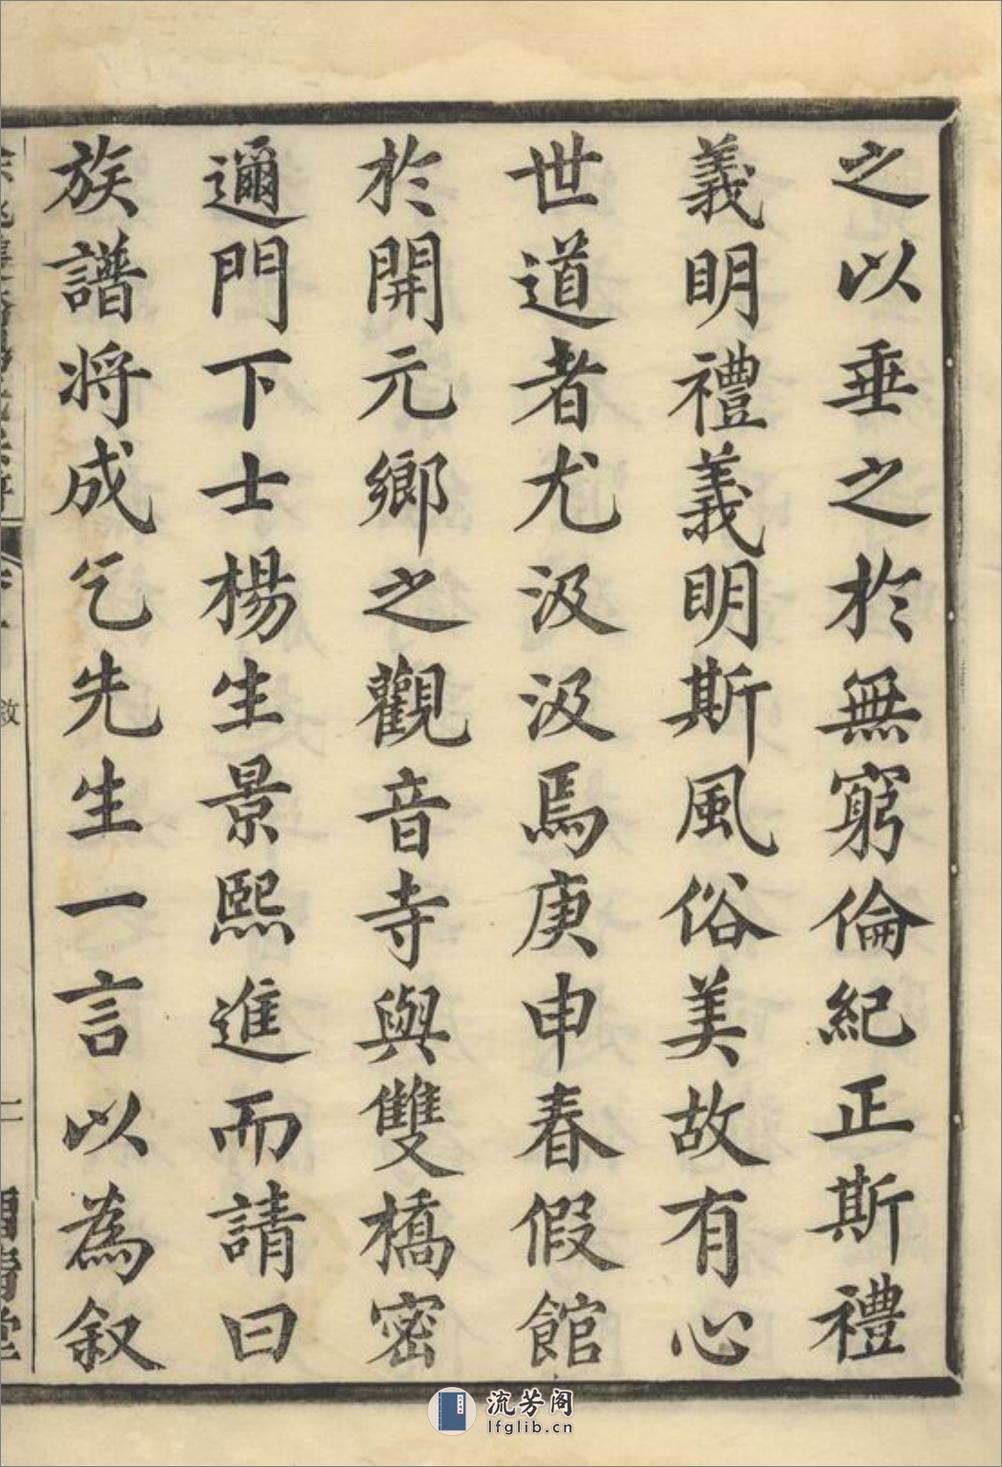 之以垂之於無窮倫紀正斯禮
義明禮義明斯風俗美故有心
世道者尤汲汲焉庚申春假館
於開元鄉之觀音寺與雙橋密
邇門下士楊生景熙進而請曰
族譜將成乞先生一言以為叙
敘
二
流芳阁
lfglib.cn